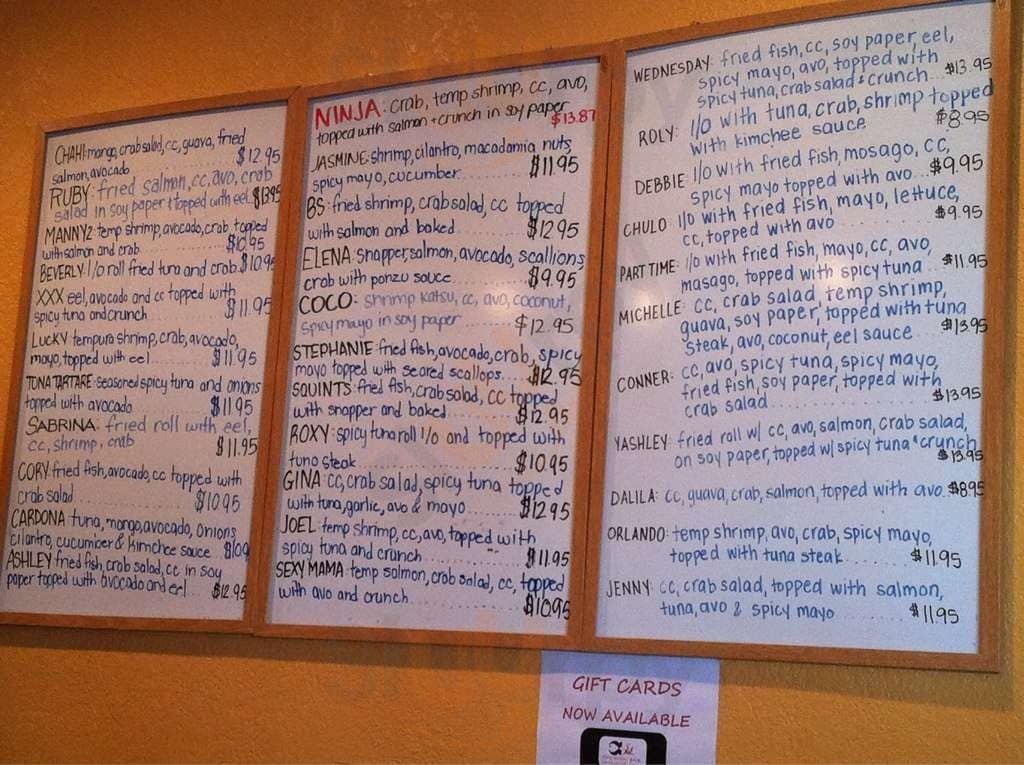 CHAHI: mango, crab salad, cc, guava, fried
salmon, avocado $12.95
RUBY: fried salmon, cc, avo, crab
salad in soy paper & topped with eel $13.95
MANNY2 temp shrimp, avocado, crab, topped
with salmon and crab $10.95
BEVERLY: I/o roll fried tuna and crab $10.95
XXX eel, avocado and cc topped with
spicy tuna and crunch $11.95
LUCKY tempura shrimp, crab, avocado,
mayo, topped with eel $11.95
TUNA TARTARE: seasoned spicy tuna and onions
topped with avocado $11.95
SABRINA: fried roll with eel,
cc, shrimp, crab $11.95
CORY fried fish, avocado, cc topped with
crab salad $10.95
CARDONA tuna, mango, avocado, onions
cilantro, cucumber & kimchee sauce
ASHLEY fried fish, crab salad, cc in soy
paper topped with avocado and eel $12.95
NINJA: crab, temp shrimp, cc, avo,
topped with salmon + crunch in soy paper
$13.87
JASMINE: shrimp, cilantro, macadamia nuts,
spicy mayo, cucumber $11.95
BS: fried shrimp, crab salad, cc topped
with salmon and baked $12.95
ELENA: snapper, salmon, avocado, scallions,
crab with ponzu sauce $9.95
COCO: shrimp katsu, cc, avo, coconut,
spicy mayo in soy paper $12.95
STEPHANIE: fried fish, avocado, crab, spicy
mayo topped with seared scallops $12.95
SQUINTS: fried fish, crab salad, cc topped
with snapper and baked $12.95
ROXY: spicy tuna roll I/o and topped with
tuna steak $10.95
GINA: cc, crab salad, spicy tuna topped
with tuna, garlic, avo & mayo $12.95
JOEL: temp shrimp, cc, avo, topped with
spicy tuna and crunch $11.95
SEXY MAMA: temp salmon, crab salad, cc, topped
with avo and crunch $10.95
WEDNESDAY: fried fish, cc, soy paper, eel,
spicy mayo, avo, topped with
spicy tuna, crab salad & crunch $13.95
ROLY: I/o with tuna, crab, shrimp topped
with kimchee sauce $8.95
DEBBIE: I/o with fried fish, mosago, cc,
spicy mayo topped with avo $9.95
CHULO: I/o with fried fish, mayo, lettuce,
cc, topped with avo $9.95
PART TIME: I/o with fried fish, mayo, cc, avo,
masago, topped with spicy tuna $11.95
MICHELLE: cc, crab salad, temp shrimp,
guava, soy paper, topped with tuna
steak, avo, coconut, eel sauce $13.95
CONNER: cc, avo, spicy tuna, spicy mayo,
fried fish, soy paper, topped with
crab salad $13.95
YASHLEY: fried roll w/ cc, avo, salmon, crab salad,
on soy paper, topped w/ spicy tuna & crunch
$13.95
DALILA: cc, guava, crab, salmon, topped with avo $8.95
ORLANDO: temp shrimp, avo, crab, spicy mayo,
topped with tuna steak $11.95
JENNY: cc, crab salad, topped with salmon,
tuna, avo & spicy mayo $11.95
GIFT CARDS
NOW AVAILABLE